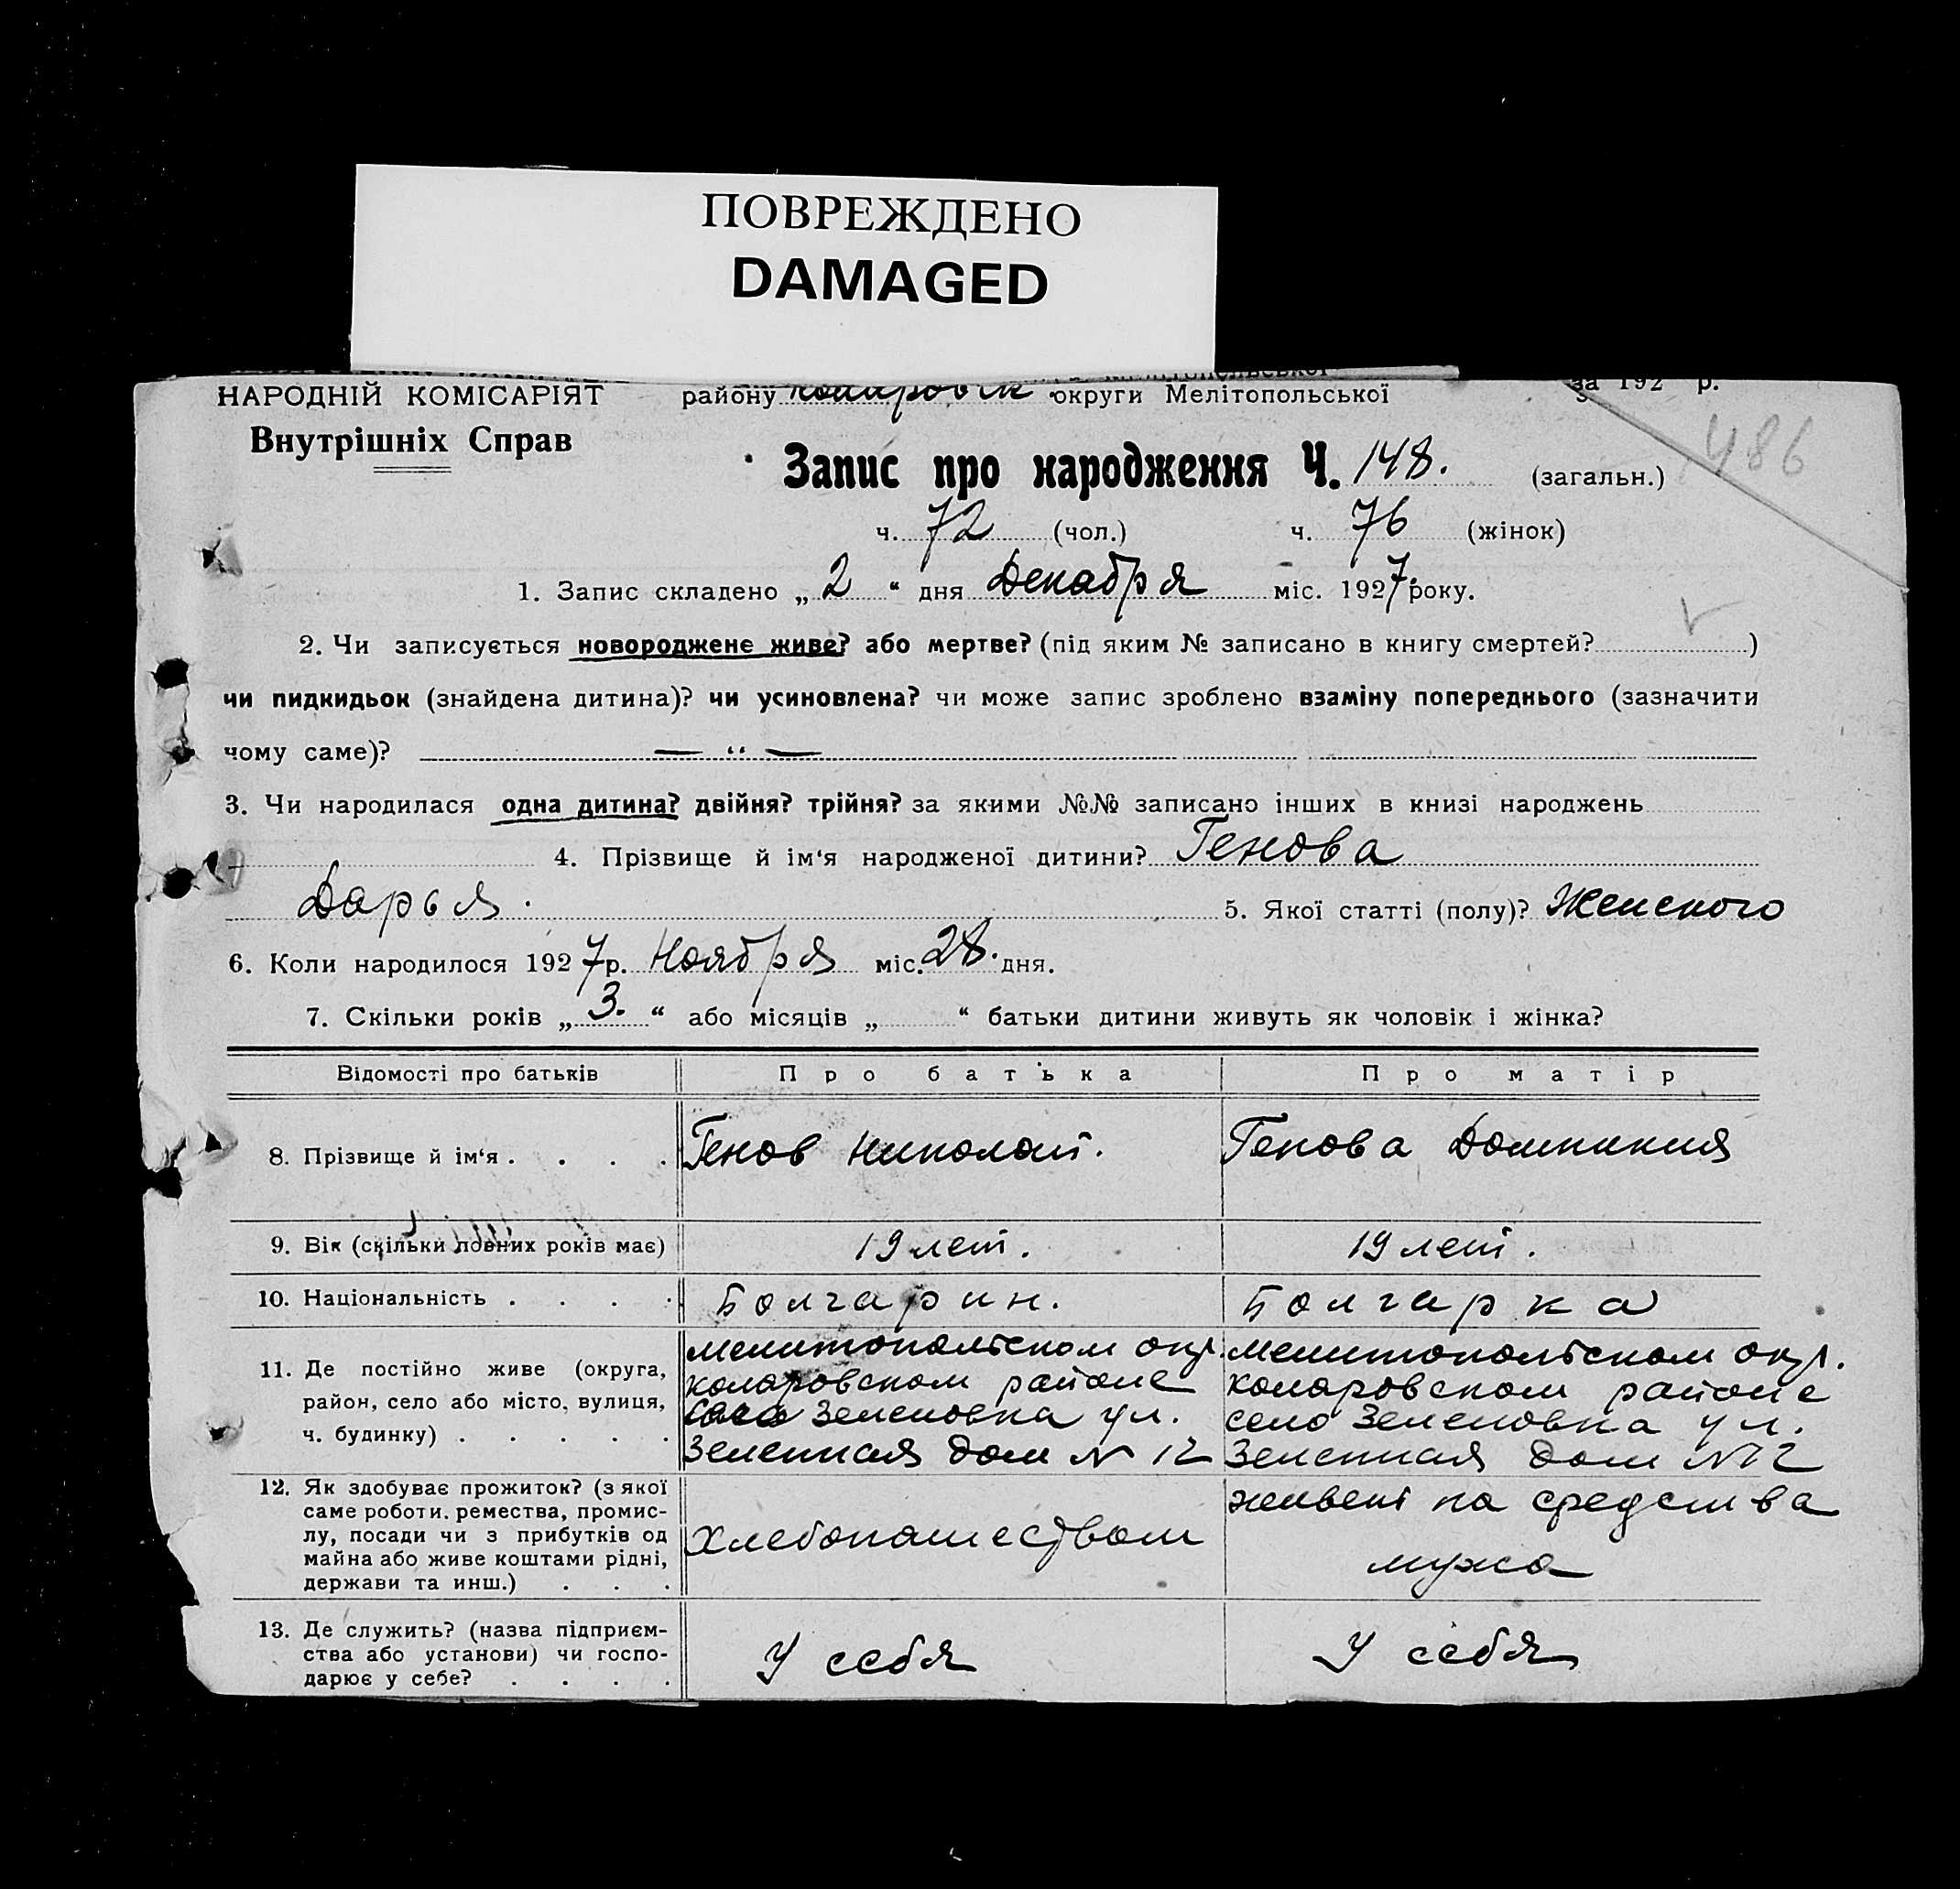 ПОВРЕЖДЕНО
DAMAGED
НАРОДНІЙ КОМІСАРІЯТ району округи Мелітопольської за 192 р.
Внутрішніх Справ
486
Запис про народження Ч. 148. (загальн.)
ч. 72 (чол.) ч. 76 (жінок)
1. Запис складено „ 2 “ дня Декабря міс. 1927 року.
2. Чи записується новороджене живе? або мертве? (під яким № записано в книгу смертей? )
чи пидкидьок (знайдена дитина)? чи усиновлена? чи може запис зроблено взаміну попереднього (зазначити
чому саме)? — “ —
3. Чи народилася одна дитина? двійня? трійня? за якими №№ записано інших в книзі народжень
4. Прізвище й ім‘я народженої дитини? Генова
Дарья. 5. Якої статті (полу)? Женского
6. Коли народилося 1927 р. Ноября міс. 28. дня.
7. Скільки років „ 3. “ або місяців „ “ батьки дитини живуть як чоловік і жінка?
Відомості про батьків Про батька Про матір
8. Прізвище й ім‘я . . . . Генов Николай. Генова Домникия
9. Вік (скільки повних років має) 19 лет. 19 лет.
10. Національність . . . . Болгарин. Болгарка
11. Де постійно живе (округа,
район, село або місто, вулиця,
ч. будинку) . . . . .
Мелитопольском окр.
коларовском районе
село Зеленовка ул.
Зеленная дом № 12
Мелитопольском окр.
коларовском районе
село Зеленовка ул.
Зеленная дом № 12
12. Як здобуває прожиток? (з якої
саме роботи, ремества, промис-
лу, посади чи з прибутків од
майна або живе коштами рідні,
держави та инш.) . . .
Хлебопашеством
живет на средства
мужа
13. Де служить? (назва підприєм-
ства або установи) чи госпо-
дарює у себе? . . . .
У себя
У себя